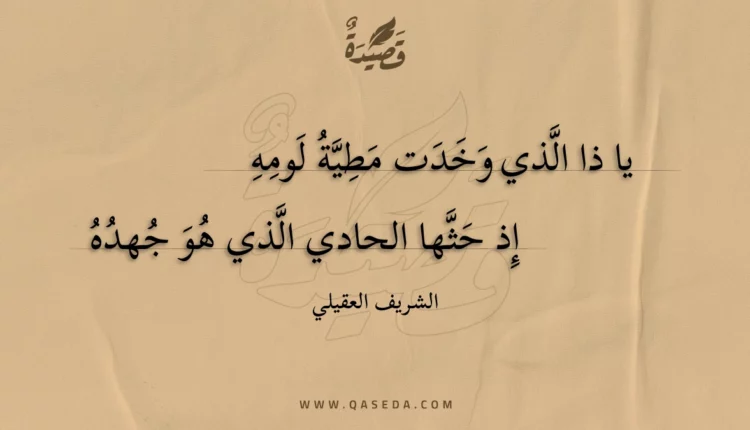 قَصِيدَةٌ
يا ذا الَّذي وَخَدَت مَطِيَّةُ لَومِهِ
إِذ حَثَّها الحادي الَّذي هُوَ جُهدُهُ
الشريف العقيلي
WWW.QASEDA.COM